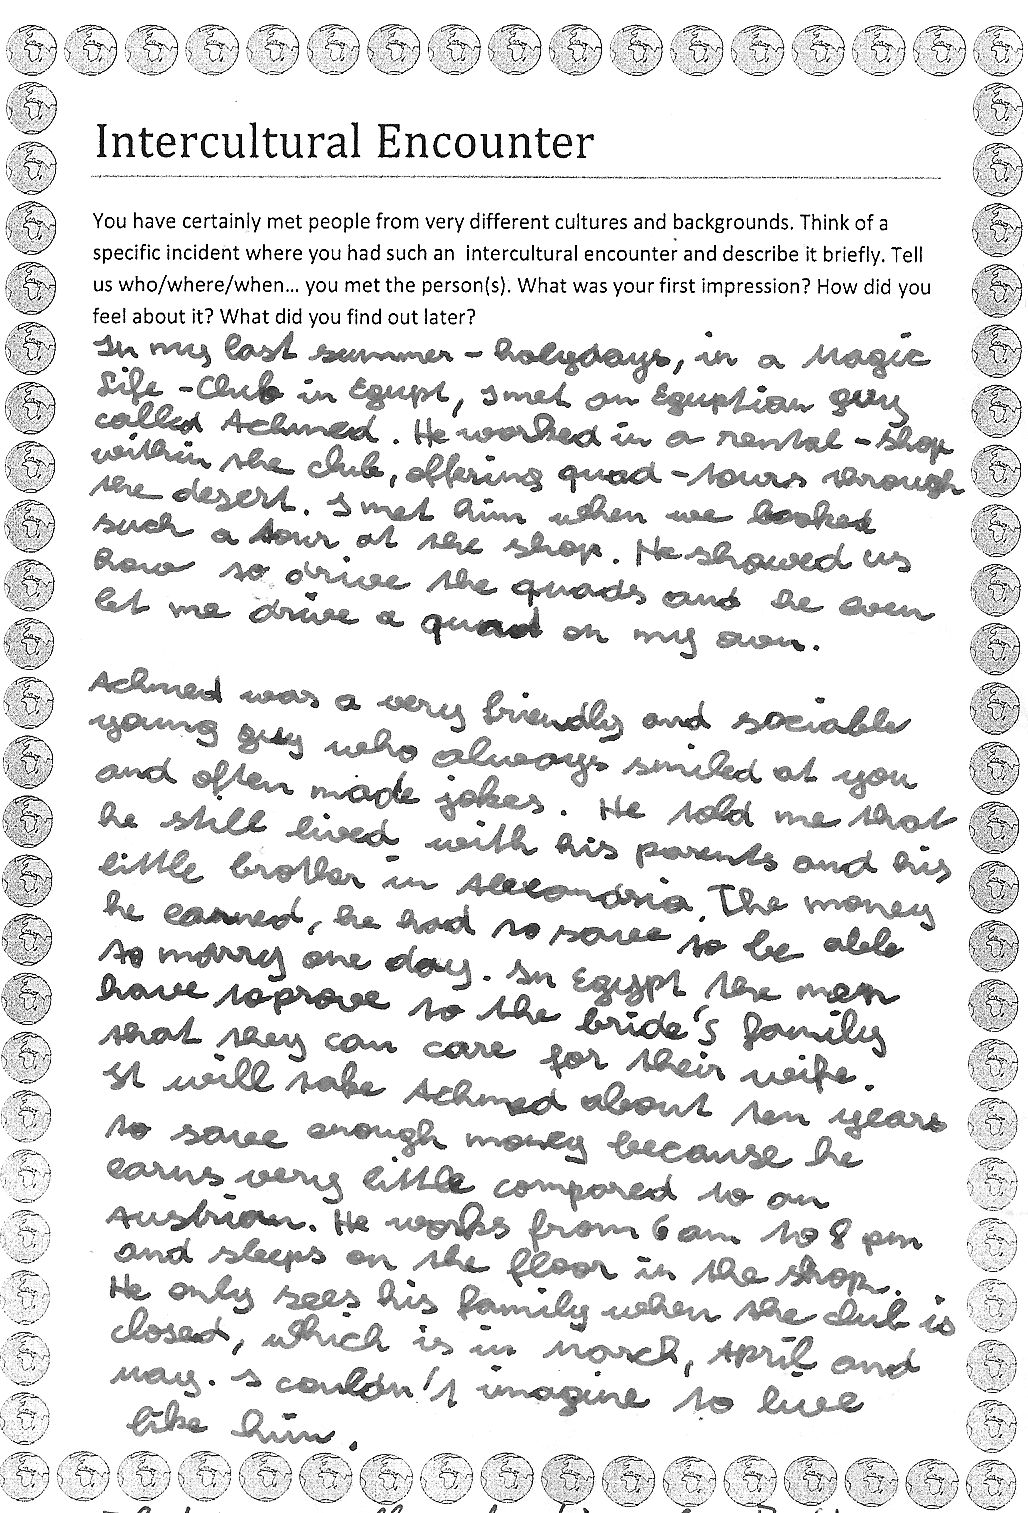 Intercultural Encounter
You have certainly met people from very different cultures and backgrounds. Think of a
specific incident where you had such an intercultural encounter and describe it briefly. Tell
us who/where/when... you met the person(s). What was your first impression? How did you
feel about it? What did you find out later?
In my last summer-holydays, in a Magic
Life-Club in Egypt, I met an Egyptian guy
called Achmed. He worked in a rental-shop
within the club, offering quad-tours through
the desert. I met him when we booked
such a tour at the shop. He showed us
how to drive the quads and he even
let me drive a quad on my own.
Achmed was a very friendly and sociable
young guy who always smiled at you
and often made jokes. He told me that
he still lived with his parents and his
little brother in Alexandria. The money
he earned, he had to save to be able
to marry one day. In Egypt the men
have to prove to the bride's family
that they can care for their wife.
It will take Achmed about ten years
to save enough money because he
earns very little compared to an
Austrian. He works from 6 am to 8 pm
and sleeps on the floor in the shop.
He only sees his family when the club is
closed, which is in March, April and
May. I couldn't imagine to live
like him.